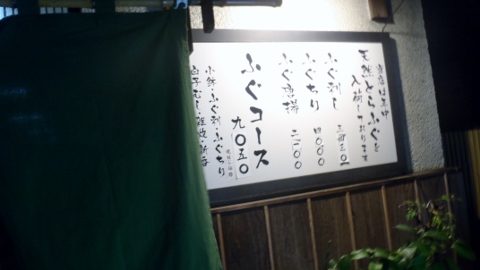 当店は年中
天然とらふぐを
入荷しております
ふぐ刺し
ふぐちり 四〇〇〇
ふぐ唐揚 二一〇〇
ふぐコース
九〇五〇
小鉢・ふぐ刺し・ふぐちり
白子むし・雑炊・新香